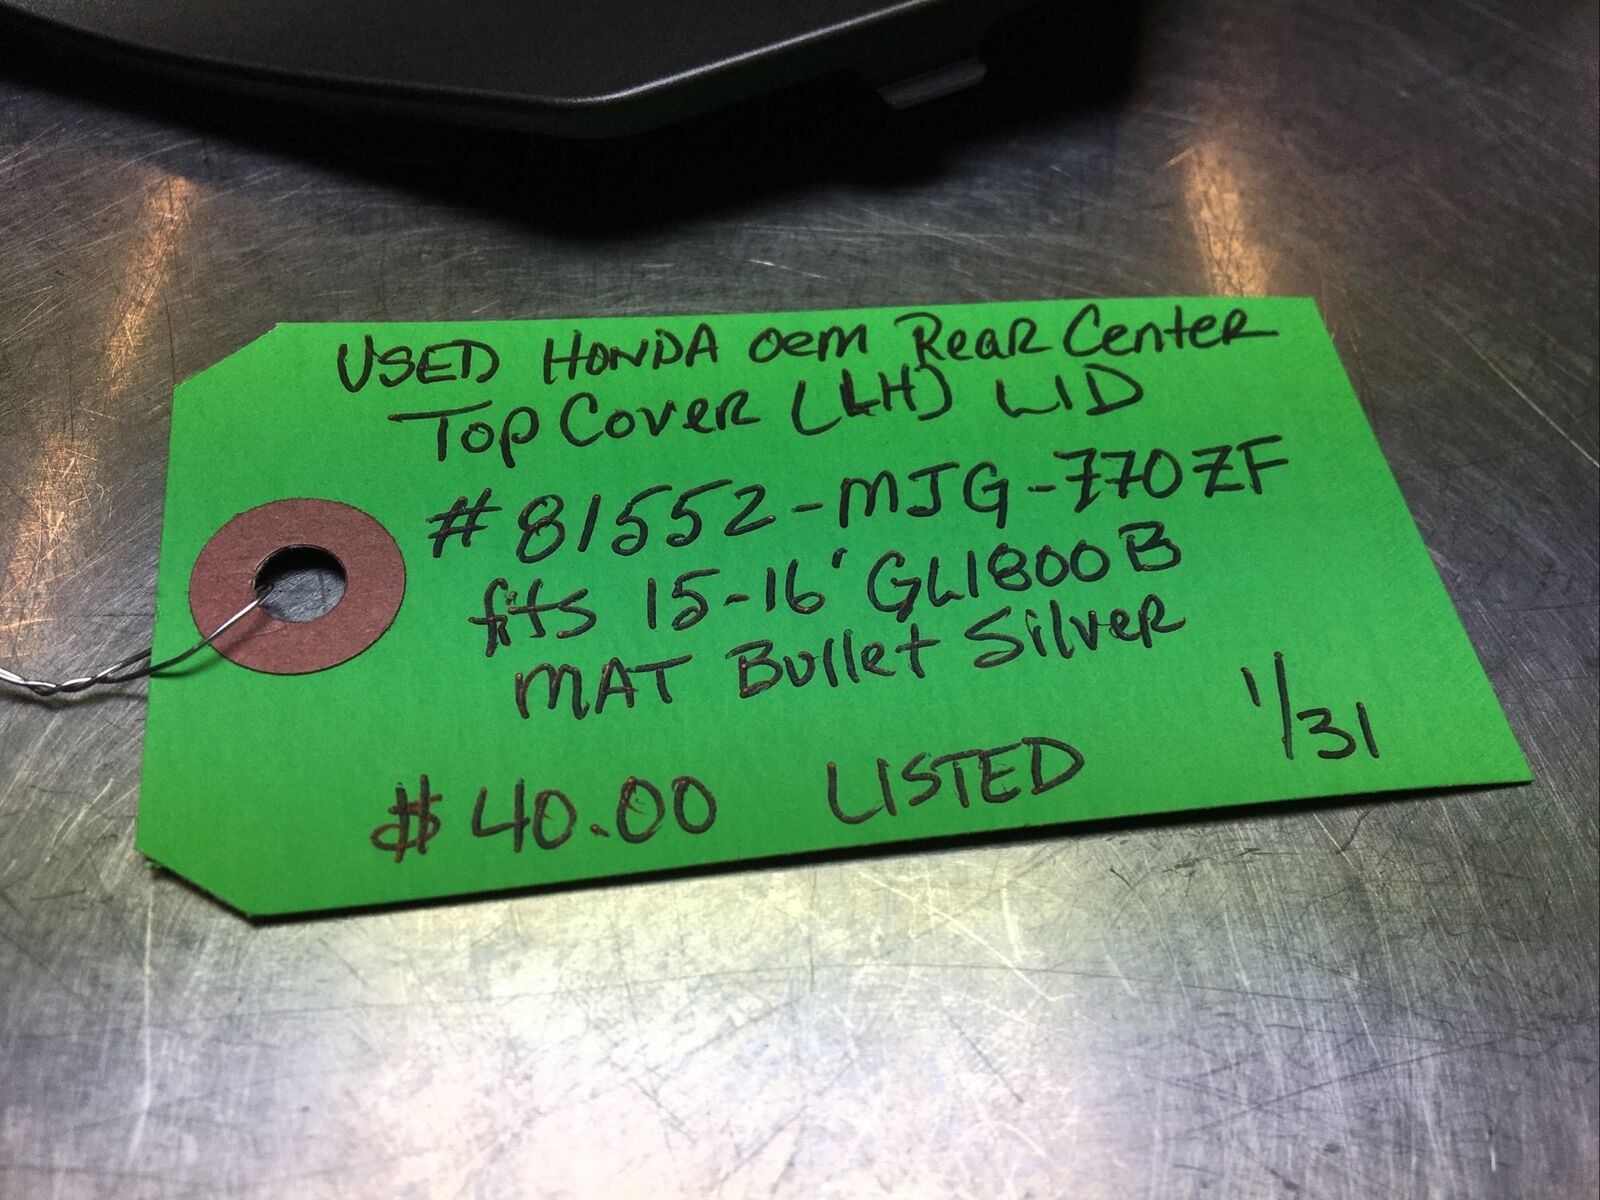 USED HONDA Oem Rear Center
Top Cover (LH) LID
#81552-MJG-770ZF
fits 15-16' GL1800B
MAT Bullet Silver
$40.00 LISTED 1/31